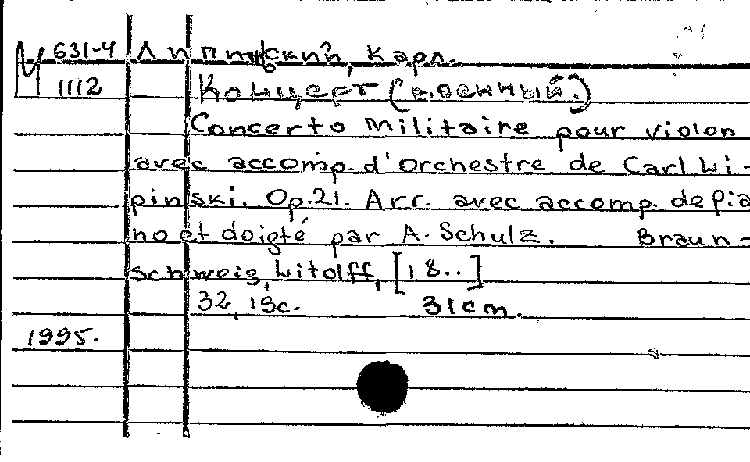 М 631-4 Липинский, Карл.
1112 Концерт (военный.)
Concerto militaire pour violon
avec accomp. d'orchestre de Carl Li-
pinski. Op.21. Arr. avec accomp. de pia
no et doigté par A. Schulz. Braun-
schweig, Litolff, [18..]
32, 19c. 31cm.
1995.